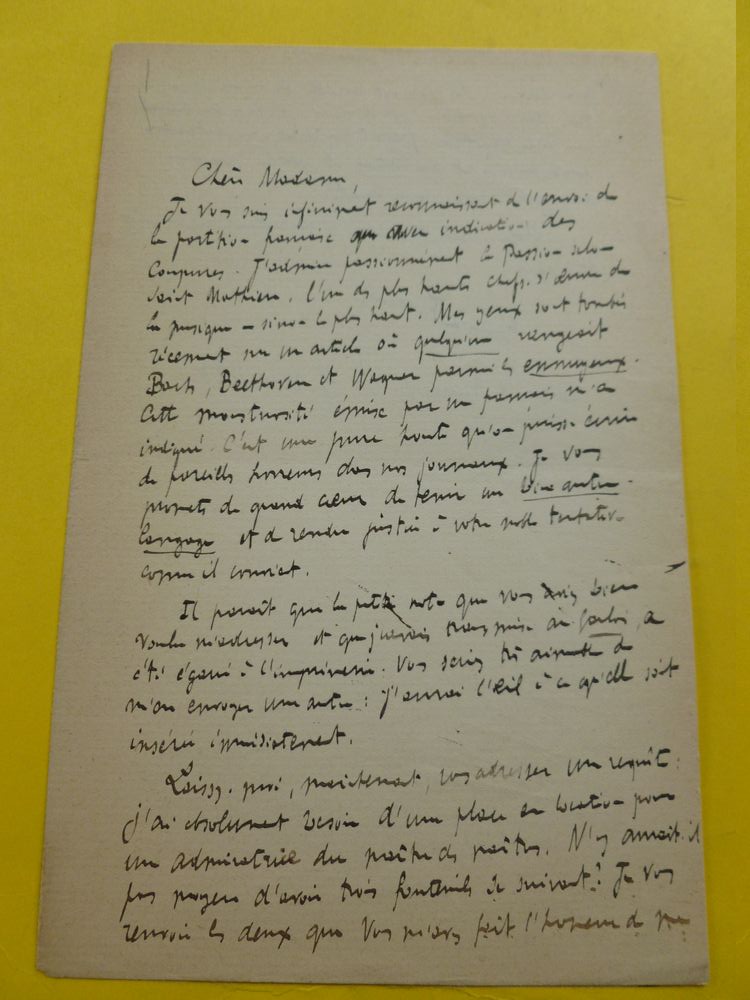 Chère Madame,
Je vous suis infiniment reconnaissant de l'envoi de
la partition française avec indication des
coupures. J'admire passionnément la Passion selon
Saint Mathieu, l'un des plus hauts chefs-d'œuvre de
la musique – sinon le plus haut. Mes yeux sont tombés
récemment sur un article où quelqu'un rangeait
Bach, Beethoven et Wagner parmi les ennuyeux.
Cette monstruosité émise par un français m'a
indigné. C'est une pure honte qu'on puisse écrire
de pareilles horreurs dans nos journaux. Je vous
promets de grand cœur de tenir un bien autre
langage et de rendre justice à votre noble tentative
comme il convient.
Il paraît que la petite note que vous aviez bien
voulu m'adresser et que j'avais transmise au Gaulois, a
été égarée à l'imprimerie. Vous seriez très aimable de
m'en envoyer une autre : j'aurai l'œil à ce qu'elle soit
insérée immédiatement.
Laissez-moi, maintenant, vous adresser une requête :
j'ai absolument besoin d'une place en location pour
une admiratrice du maître des maîtres. N'y aurait-il
pas moyen d'avoir trois fauteuils se suivant ? Je vous
renvoie les deux que vous m'avez fait l'honneur de me